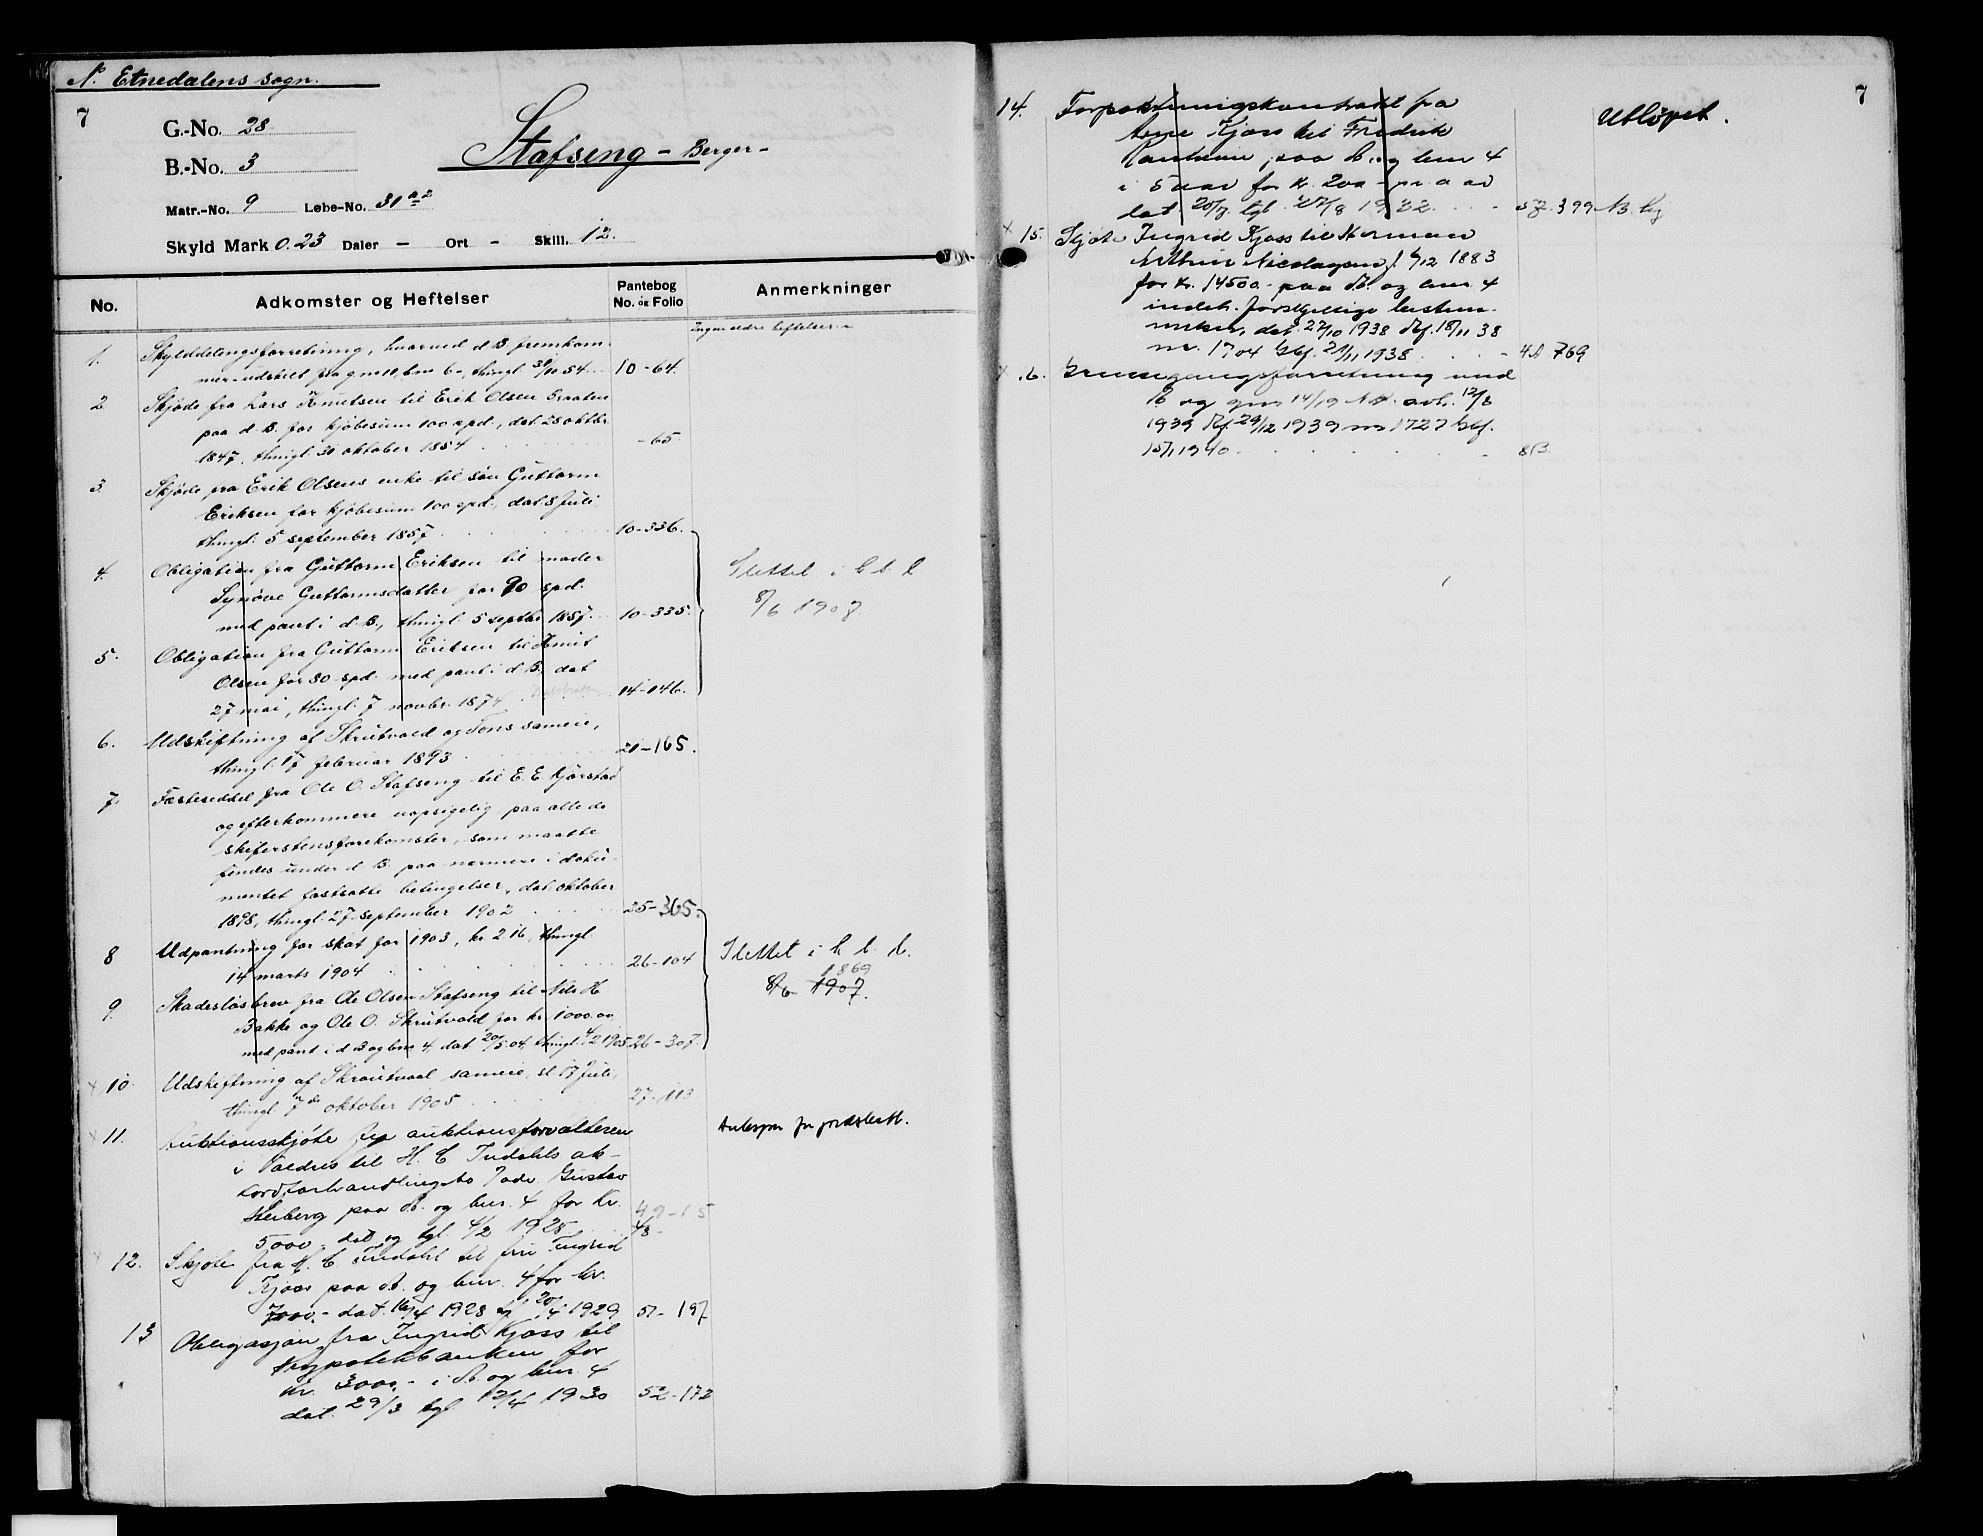 N. Etnedalens sogn.
7
G.-No. 28
B.-No. 3
Matr.-No. 9 Løbe-No. 31 a-2
Skyld Mark 0.23 Daler - Ort - Skill. 12.
Stafseng - Berger -
No.
Adkomster og Heftelser
Pantebog
No. og Folio
Anmerkninger
Ingen ældre heftelser.
1. Skylddelingsforretning, hvorved d. B. fremkom-
mer udskilt fra g.no , b.no 6, thingl. 30/10 54 10-64.
2 Skjøde fra Lars Knutsen til Erik Olsen Braaten
paa d. B. for kjøbesum 100 spd., dat. 28 oktbr.
1847, thingl. 30 oktober 1854 -65.
3. Skjøde fra Erik Olsens enke til søn Guttorm
Eriksen for kjøbesum 100 spd., dat. 8 Juli,
thingl. 5 september 1857 10-336.
4. Obligation fra Guttorm Eriksen til moder
Synøve Guttormsdatter for 90 spd.
med pant i d. B., thingl. 5 septbr. 1857. 10-335.
Slettet i h. b. l.
8/6 1907.
5. Obligation fra Guttorm Eriksen til Knut
Olsen for 80 spd. med pant i d. B. dat
27 mai, thingl. 7 novbr. 1874 14-146.
6. Udskiftning af Skrutvold og Tons sameie,
thingl. 17 februar 1893 21-165.
7. Fæsteseddel fra Ole O. Stafseng til E. E. Kjørstad
og efterkommere uopsigelig paa alle de
skiferstensforekomster, som maatte
findes under d. B. paa nærmere i doku-
mentet fastsatte betingelser, dat. oktober
1898, thingl. 27 september 1902 25-365.
8 Udpantning for skat for 1903, kr. 2 16, thingl.
14 marts 1904 26-104
Slettet i h. b. l.
1869
8/6 1907.
9. Skadesløsbrev fra Ole Olsen Stafseng til Nils H.
Bakke og Ole O. Skrutvold for kr. 1000.00
med pant i d. B og bno 4, dat 20/5 04, thingl. 4/2 1905 26-307.
10. Udskiftning af Skrautvaal sameie, sl. 17 Juli,
thingl. 7de oktober 1905 27-113
11. Auktionsskjøte fra auktionsforvalteren
i Valdres til H. C. Indahls ak-
kordforhandlingsbo v/adv. Gustav
Heiberg paa d. B. og bnr. 4 for Kr.
5000,- dat og tgl. 4/2 1928 49-15
12. Skjøte fra H. C. Indahl til fru Ingrid
Kjøss paa d. B. og bnr. 4 for kr.
7000,- dat. 16/4 1928 tgl 20/4 1929 51-197
13 Obligasjon fra Ingrid Kjøss til
Hypotekbanken for
Kr. 3000,- i d. B. og bnr. 4
dat. 29/3 tgl 12/4 1930 52-172
7
14. Forpaktningskontrakt fra
Arne Kjøss til Fredrik
paa d. B. og bnr 4
i 5 aar for kr. 200 - pr. a ar
dat. 20/7. tgl. 27/8 1932 57.399
Utløpet.
15. Skjøte Ingrid Kjøss til Herman
Arthur Nicolaysen f. 6/12 1883
for kr. 14500.- paa d. B. og bnr. 4
indeh. forskjellige bestem-
melser, dat. 27/10 1938 df. 18/11 38
nr. 1704 tgf. 21/11 1938 4A 769
16. Grensegangsforretning med
B og gnr 14/19 avh. 12/8
1939 df. 29/12 1939 nr 1727 tgf.
15/1 1940 8B.